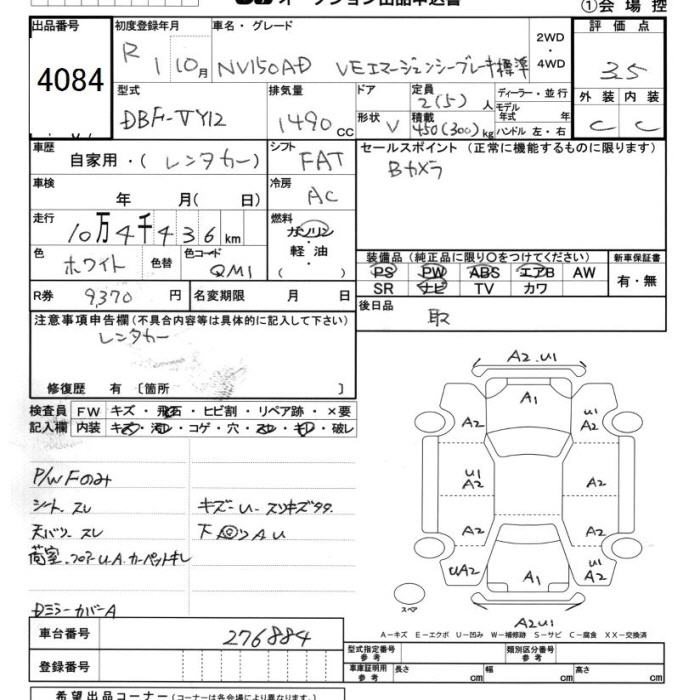 ①会場控
出品番号
4084
初度登録年月
R 1 10月
車名・グレード
NV150AD VEエマージェンシーブレーキ標準
2WD
・
4WD
評価点
3.5
外装 内装
C C
型式
DBF-VY12
排気量
1490 CC
ドア
形状 V
定員
2(5) 人
積載
450(300) kg
ディーラー・並行
モデル
年式 年
ハンドル 左・右
車歴
自家用・(レンタカー)
シフト
FAT
セールスポイント (正常に機能するものに限ります)
Bカメラ
車検
年 月( 日)
冷房
AC
走行
10万4千436 km
燃料
ガソリン
・
軽油
・
( )
色
ホワイト
色替
色コード
QM1
装備品 (純正品に限り〇をつけてください)
PS PW ABS エアB AW
SR ナビ TV カワ
新車保証書
有・無
R券 9,370 円
名変期限 月 日
後日品
取
注意事項申告欄 (不具合内容等は具体的に記入して下さい)
レンタカー
修復歴 有 〔箇所 〕
検査員
記入欄
FW キズ・飛石・ヒビ割・リペア跡・×要
内装 キズ・汚レ・コゲ・穴・スレ・キレ・破レ
P/WFのみ
シート、スレ
天バリ、スレ
荷室、フロアーU.A.カーペットキレ
Dミラーカバー A
キズーU-スリキズタタ
A2.U1
A1
A2
U1
A2
U1
A2
A2
A2
A2
UA2
A1
U1
A2
スペア
A2U1
A-キズ E-エクボ U-凹み W-補修跡 S-サビ C-腐食 XX-交換済
車台番号
276884
登録番号
型式指定番号
参考
類別区分番号
参考
車庫証明用
参考
長さ cm 幅 cm 高さ cm
希望出品コーナー (コーナーは各会場により異なります。)